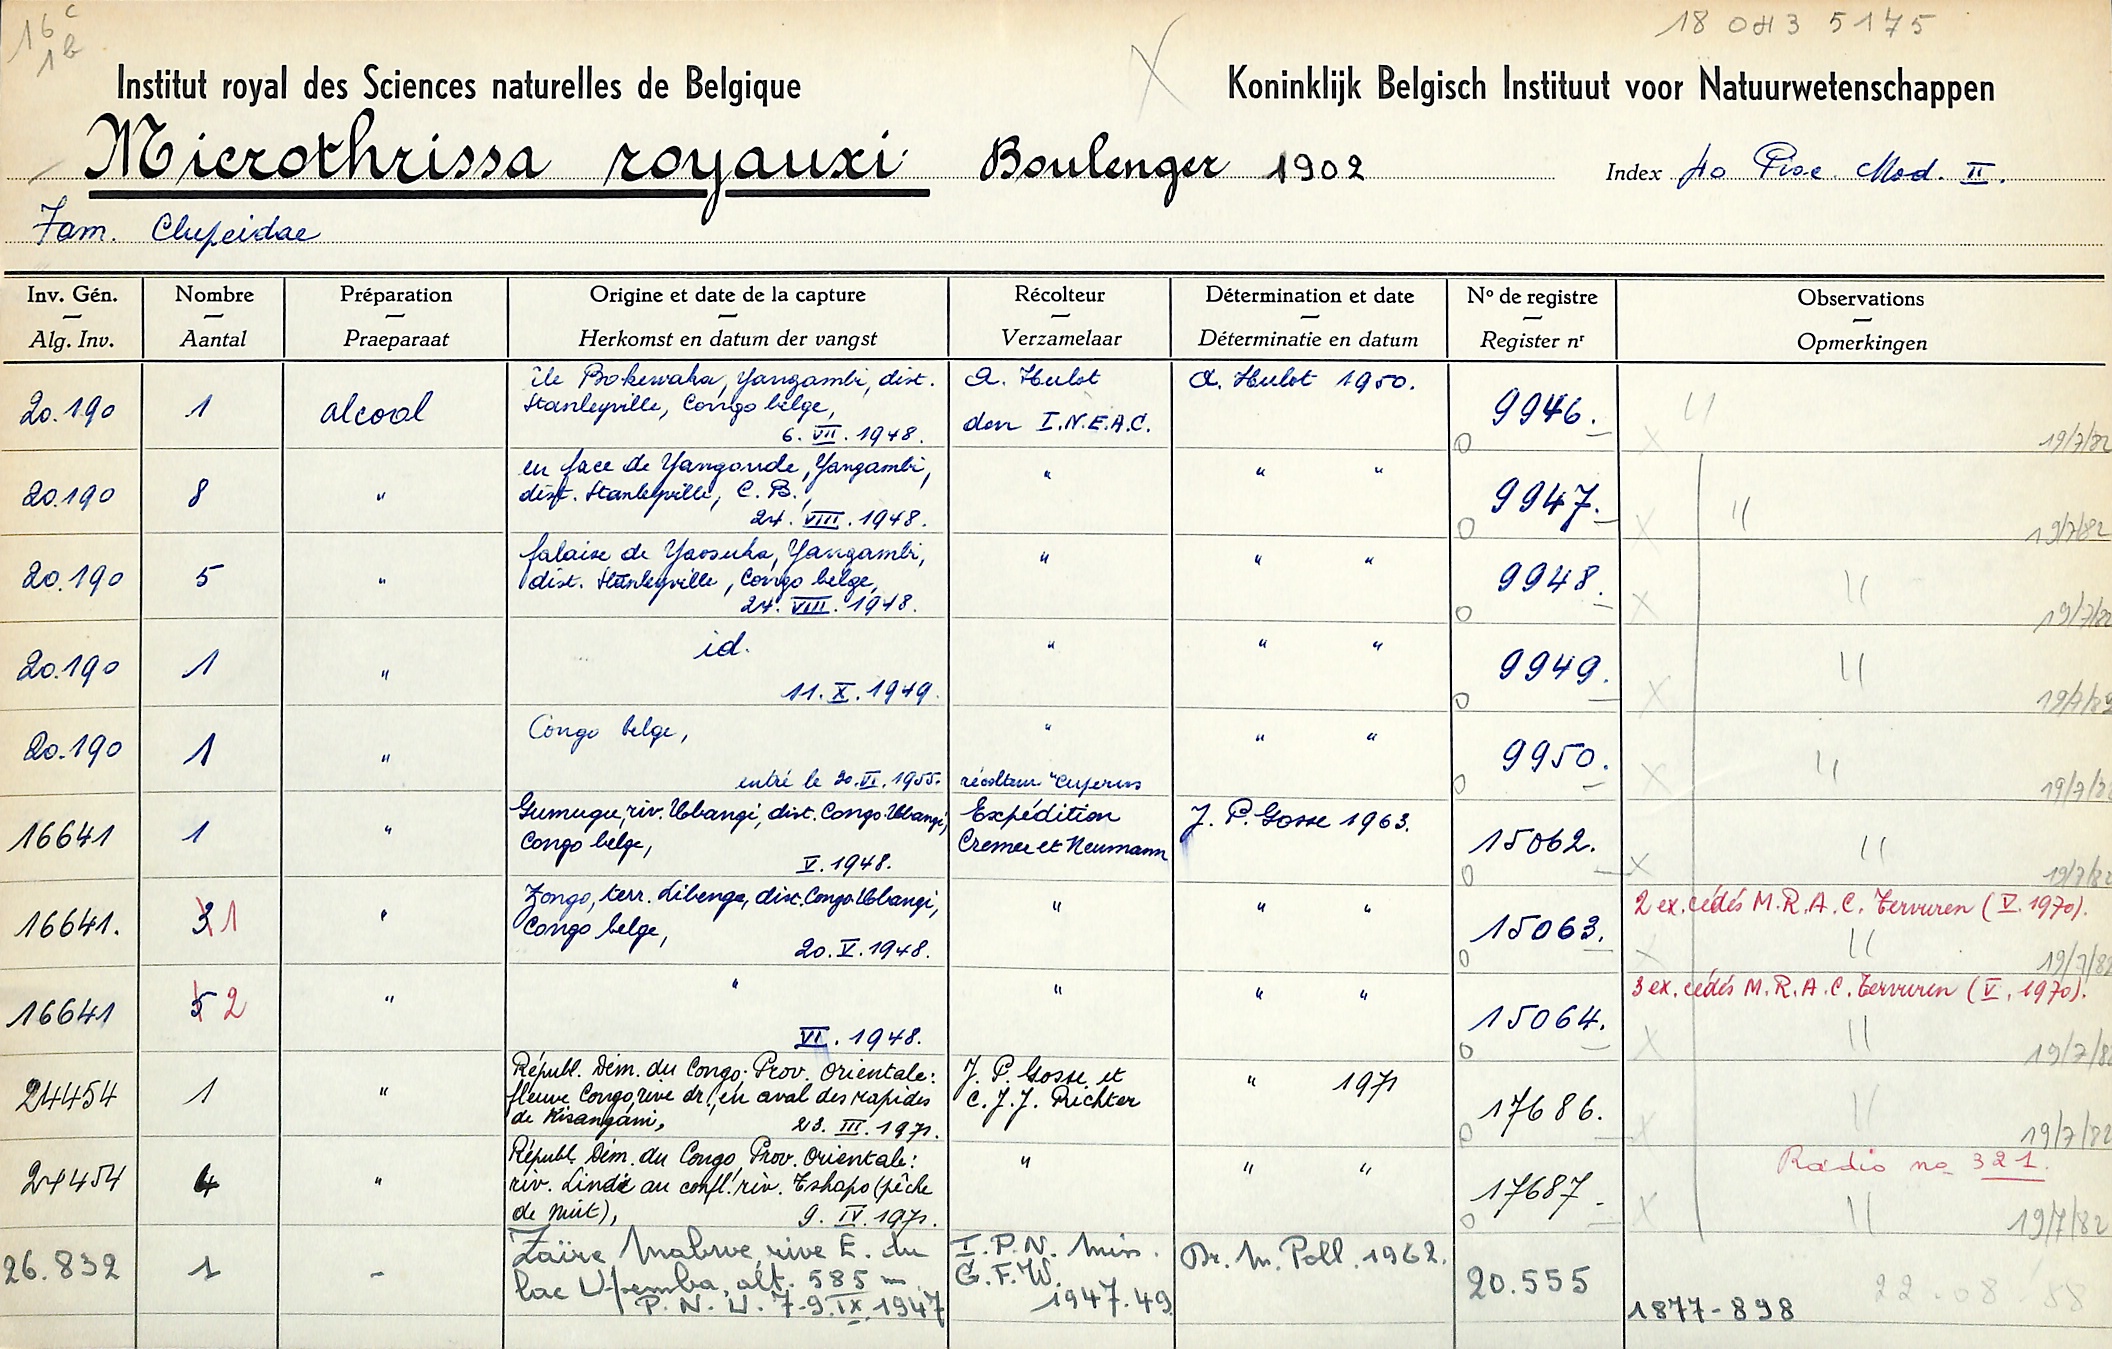 16 c
1b
18 043 5175
X
Institut royal des Sciences naturelles de Belgique
Koninklijk Belgisch Instituut voor Natuurwetenschappen
Microthrissa royauxi Boulenger 1902
Index Pisc. Mod. II.
Fam. Clupeidae
Inv. Gén. Nombre Préparation Origine et date de la capture Récolteur Détermination et date No de registre Observations
Alg. Inv. Aantal Praeparaat Herkomst en datum der vangst Verzamelaar Déterminatie en datum Register nr Opmerkingen
île Bokewaha, Yangambi, dist. A. Hulot A. Hulot 1950.
20.190 1 alcool Stanleyville, Congo belge, don I.N.E.A.C. 9946.
6. VII. 1948. 0 X " 19/7/82
en face de Yangonde, Yangambi, " " "
20.190 8 " dist. Stanleyville, C. B., 9947.
24. VIII. 1948. 0 X " 19/7/82
falaise de Yaosuka, Yangambi, " " "
20.190 5 " dist. Stanleyville, Congo belge, 9948.
24. VIII. 1948. 0 X " 19/7/82
id. " " "
20.190 1 " 9949.
11. X. 1949. 0 X " 19/7/82
Congo belge, " " "
20.190 1 " 9950.
entré le 20. VI. 1955. récolteur Cuperus 0 X " 19/7/82
Gumugu, riv. Ubangi, dist. Congo-Ubangi, Expédition J. P. Gosse 1963.
16641 1 " Congo belge, Cremer et Neumann 15062.
V. 1948. 0 X " 19/7/82
Zongo, terr. Libenge, dist. Congo-Ubangi, " " " 2 ex. cédés M.R.A.C. Tervuren (V. 1970).
16641. 3 1 " Congo belge, 15063.
20. V. 1948. 0 X " 19/7/82
" " " " 3 ex. cédés M.R.A.C. Tervuren (V. 1970).
16641 5 2 " 15064.
VI. 1948. 0 X " 19/7/82
Républ. Dém. du Congo, Prov. Orientale: J. P. Gosse et " 1971
24454 1 " fleuve Congo, rive dr., en aval des rapides C. J. J. Richter 17686.
de Kisangani, 23. III. 1971. 0 X " 19/7/82
Républ. Dém. du Congo, Prov. Orientale: " " " Radio no 321.
24454 4 " riv. Lindi au confl. riv. Tshopo (pêche 17687.
de nuit), 9. IV. 1971. 0 X " 19/7/82
Zaïre, Mabwe, rive E. du I.P.N. Miss. Dr. M. Poll. 1962.
26.832 1 - lac Upemba, alt. 585 m G.F.W. 20.555
P.N.U. 7-9. IX. 1947 1947.49. 1877-898 22.08.88